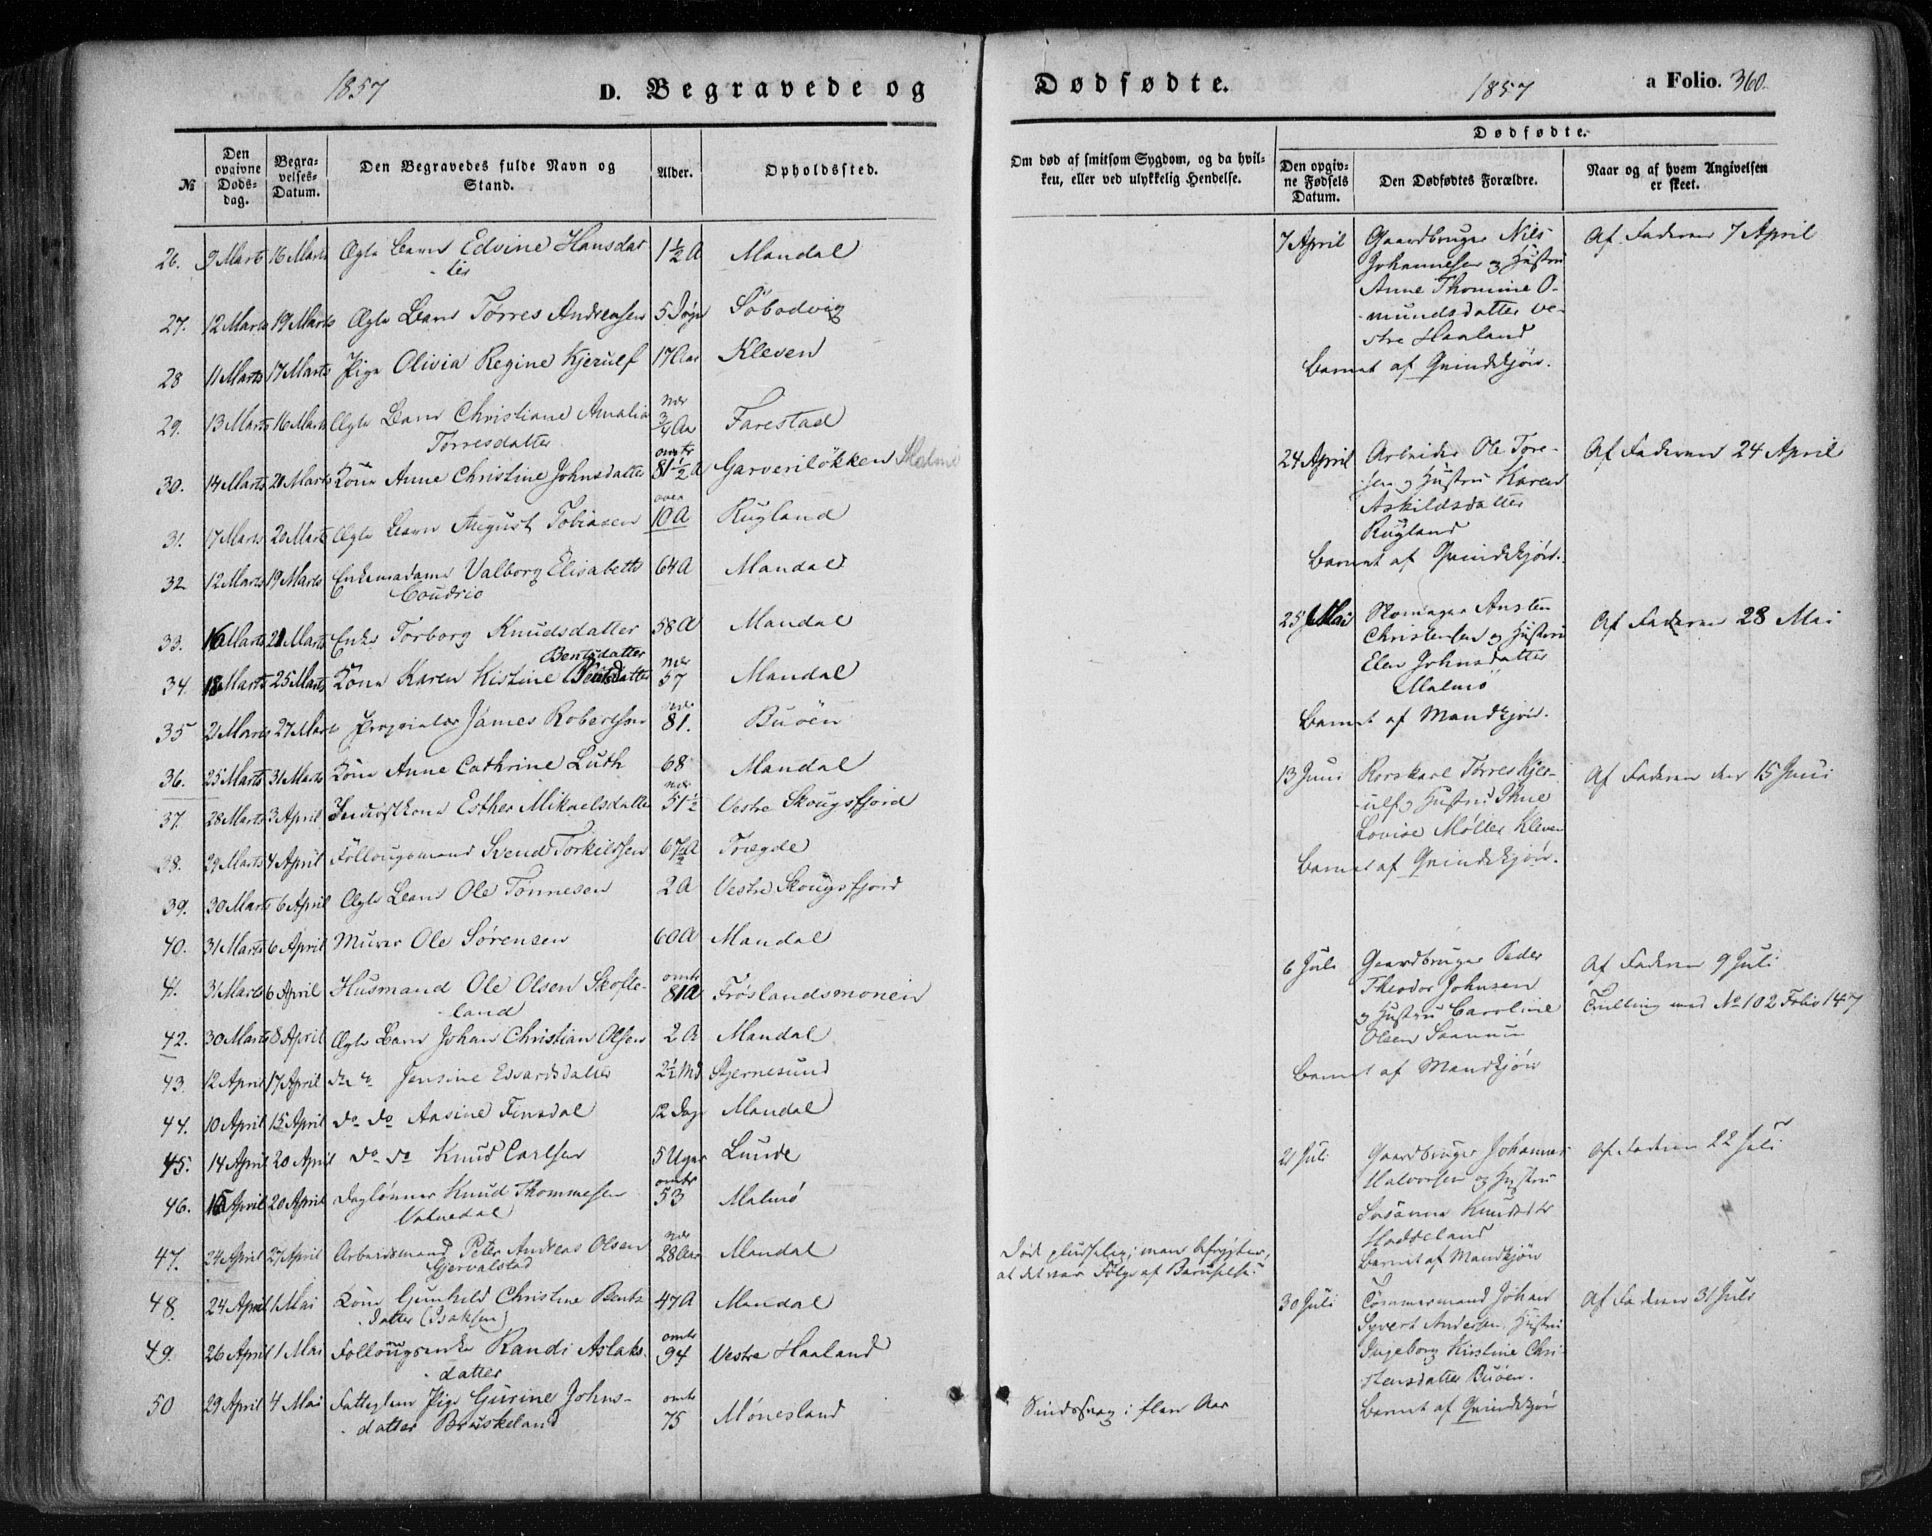 1857
D. Begravede og
Dødfødte.
1857
a Folio. 360.
№
Den opgivne Døds-dag.
Begra-velses-Datum.
Den Begravedes fulde Navn og Stand.
Alder.
Opholdssted.
Om død af smitsom Sygdom, og da hvil-
ken, eller ved ulykkelig Hendelse.
Dødfødte.
Den opgiv-ne Fødsels Datum.
Den Dødfødtes Forældre.
Naar og af hvem Angivelsen er skeet.
26. 9 Marts 16 Marts Ægte Barn Edvine Hansdat- 1½ A Mandal
ter
27. 12 Marts 19 Marts Ægte Barn Tørres Andreasen 5 Døgn
28 11 Marts 17 Marts Pige Olivia Regine Kjerulf 17 Aar Kleven
29. 13 Marts 16 Marts Ægte Barn Christiane Amalia nær ¾ Aar Farestad
Tørresdatter
30. 14 Marts 21 Marts Kone Anne Christine Johnsdatter omtr 81½ A Garveriløkken Malmø
31. 17 Marts 20 Marts Ægte Barn August Tobiasen over 10 A Rugland
32 12 Marts 19 Marts Enkemadame Valborg Elisabeth 64 A Mandal
33. 16 Marts 21 Marts Enke Torborg Knudsdatter 58 A Mandal
Bentsdatter
34. 18 Marts 25 Marts Kone Karen Kistine Bentsdatter nær 57 Mandal
35 21 Marts 27 Marts Propriatær James Robertson nær 81. Buøen
36. 25 Marts 31 Marts Kone Anne Cathrine Luth 68 Mandal
37. 28 Marts 3 April Inderstkone Esther Mikaelsdatter nær 51½ Vestre Skougsfjord
38. 29 Marts 4 April Føllougsmand Svend Torkildsen 67½ A Tregde
39. 30 Marts 6 April Ægte Barn Ole Tønnesen 2 A Vestre Skougsfjord
40. 31 Marts 6 April Murer Ole Sørensen 60 A Mandal
41. 31 Marts 6 April Husmand Ole Olsen Skofte- omtr 81 A Frøslandsmonen
land
42. 30 Marts 8 April Ægte Barn Johan Christian Olsen 2 A Mandal
43. 12 April 17 April do do Jensine Edvardsdatter 2½ Md Stjernesund
44. 10 April 15 April do do Aasine Finsdal 12 Dage Mandal
45. 14 April 20 April do do Knud Carlsen 5 Uger Lunde
46. 15 April 20 April Daglønner Knud Thommesen omtr 53 Malmø
Valnedal
47. 24 April 27 April Arbeidsmand Peter Andreas Olsen nær 28 Aar Mandal Død pludselig; man befrygter,
Gjervalstad at det var Følge af Beruselse.
48. 24 April 1 Mai Kone Gunhild Christine Bents- 47 A Mandal
datter (Isaksen)
49. 26 April 1 Mai Føllougsenke Randi Aslaks- omtr 94 Vestre Haaland
datter
50 29 April 4 Mai Fattiglem Pige Gurine Johns- omtr 75 Mønesland Sindssvag i flere Aar
datter Bruskeland
7 April Gaardbruger Nils Af Faderen 7 April
Johannesen og Hustru
Anne Thomine O-
mundsdatter Ve-
stre Haaland
Barnet af Qvindekjøn.
24 April Arbeider Ole Tore- Af Faderen 24 April
sen og Hustru Karen
Askildsdatter
Rugland
Barnet af Qvindekjøn.
25 Mai Skomager Austen Af Faderen 28 Mai
Christensen og Hustru
Elen Johnsdatter
Malmø
Barnet af Mandkjøn.
13 Juni Rorskarl Tørres Kjer- Af Faderen den 15 Juni
ulf og Hustru Thrine
Lovise Møller Kleven
Barnet af Qvindekjøn.
6 Juli Gaardbruger Peder Af Faderen 9 Juli
Theodor Johnsen Tvilling med No 102 Folio 147
og Hustru Caroline
Olsen Saanum
Barnet af Mandkjøn
21 Juli Gaardbruger Johannes Af Faderen 22 Juli
Halvorsen og Hustru
Susanne Knudsdtr
Haddeland
Barnet af Mandkjøn
30 Juli Tømmermand Johan Af Faderen 31 Juli
Syvert Andersen, Hustru
Ingeborg Kirstine Chri-
stensdatter Buøen.
Barnet af Qvindekjøn